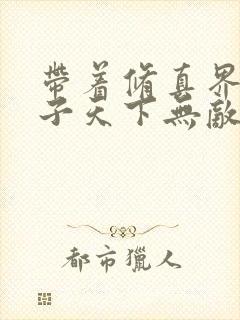 帶着脩真界
子天下無敵
都市獵人